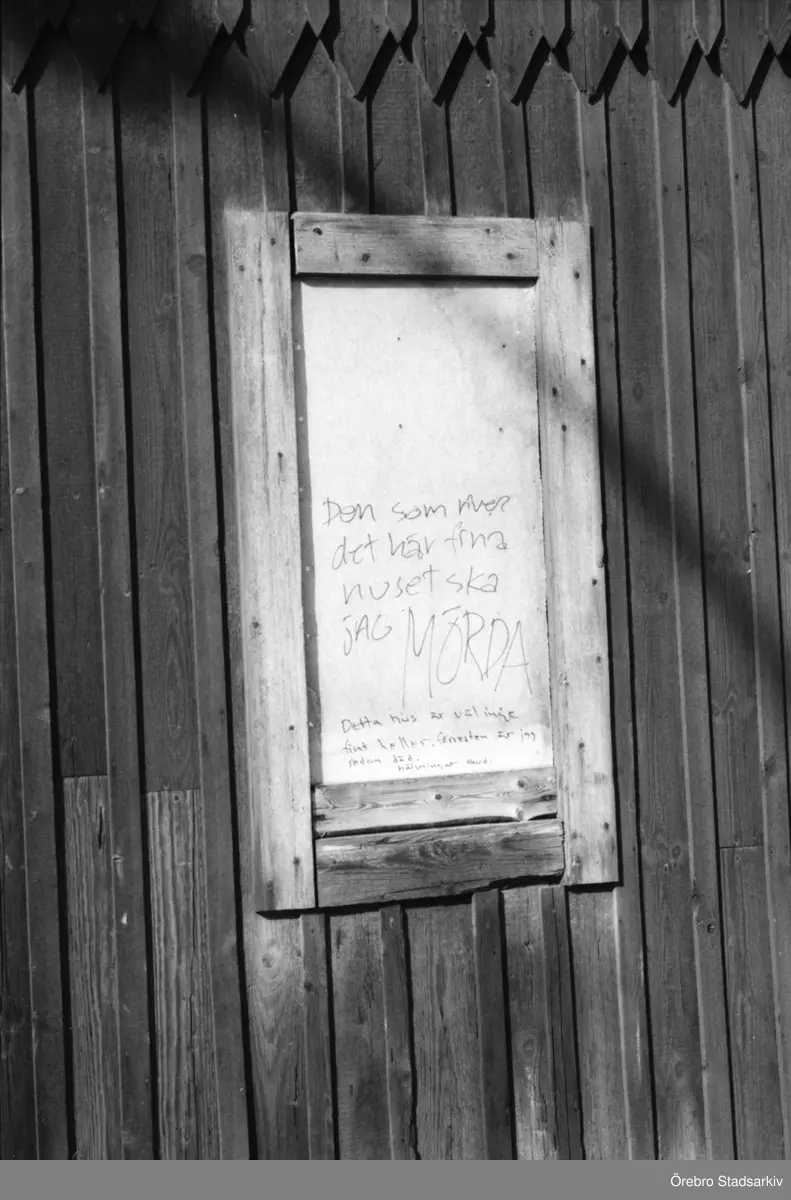 Den som river
det här fina
huset ska
jAG MÖRDA
Detta hus är väl inge
fint heller, förresten är jag
redan död.
hälsningar Gud.
Örebro Stadsarkiv